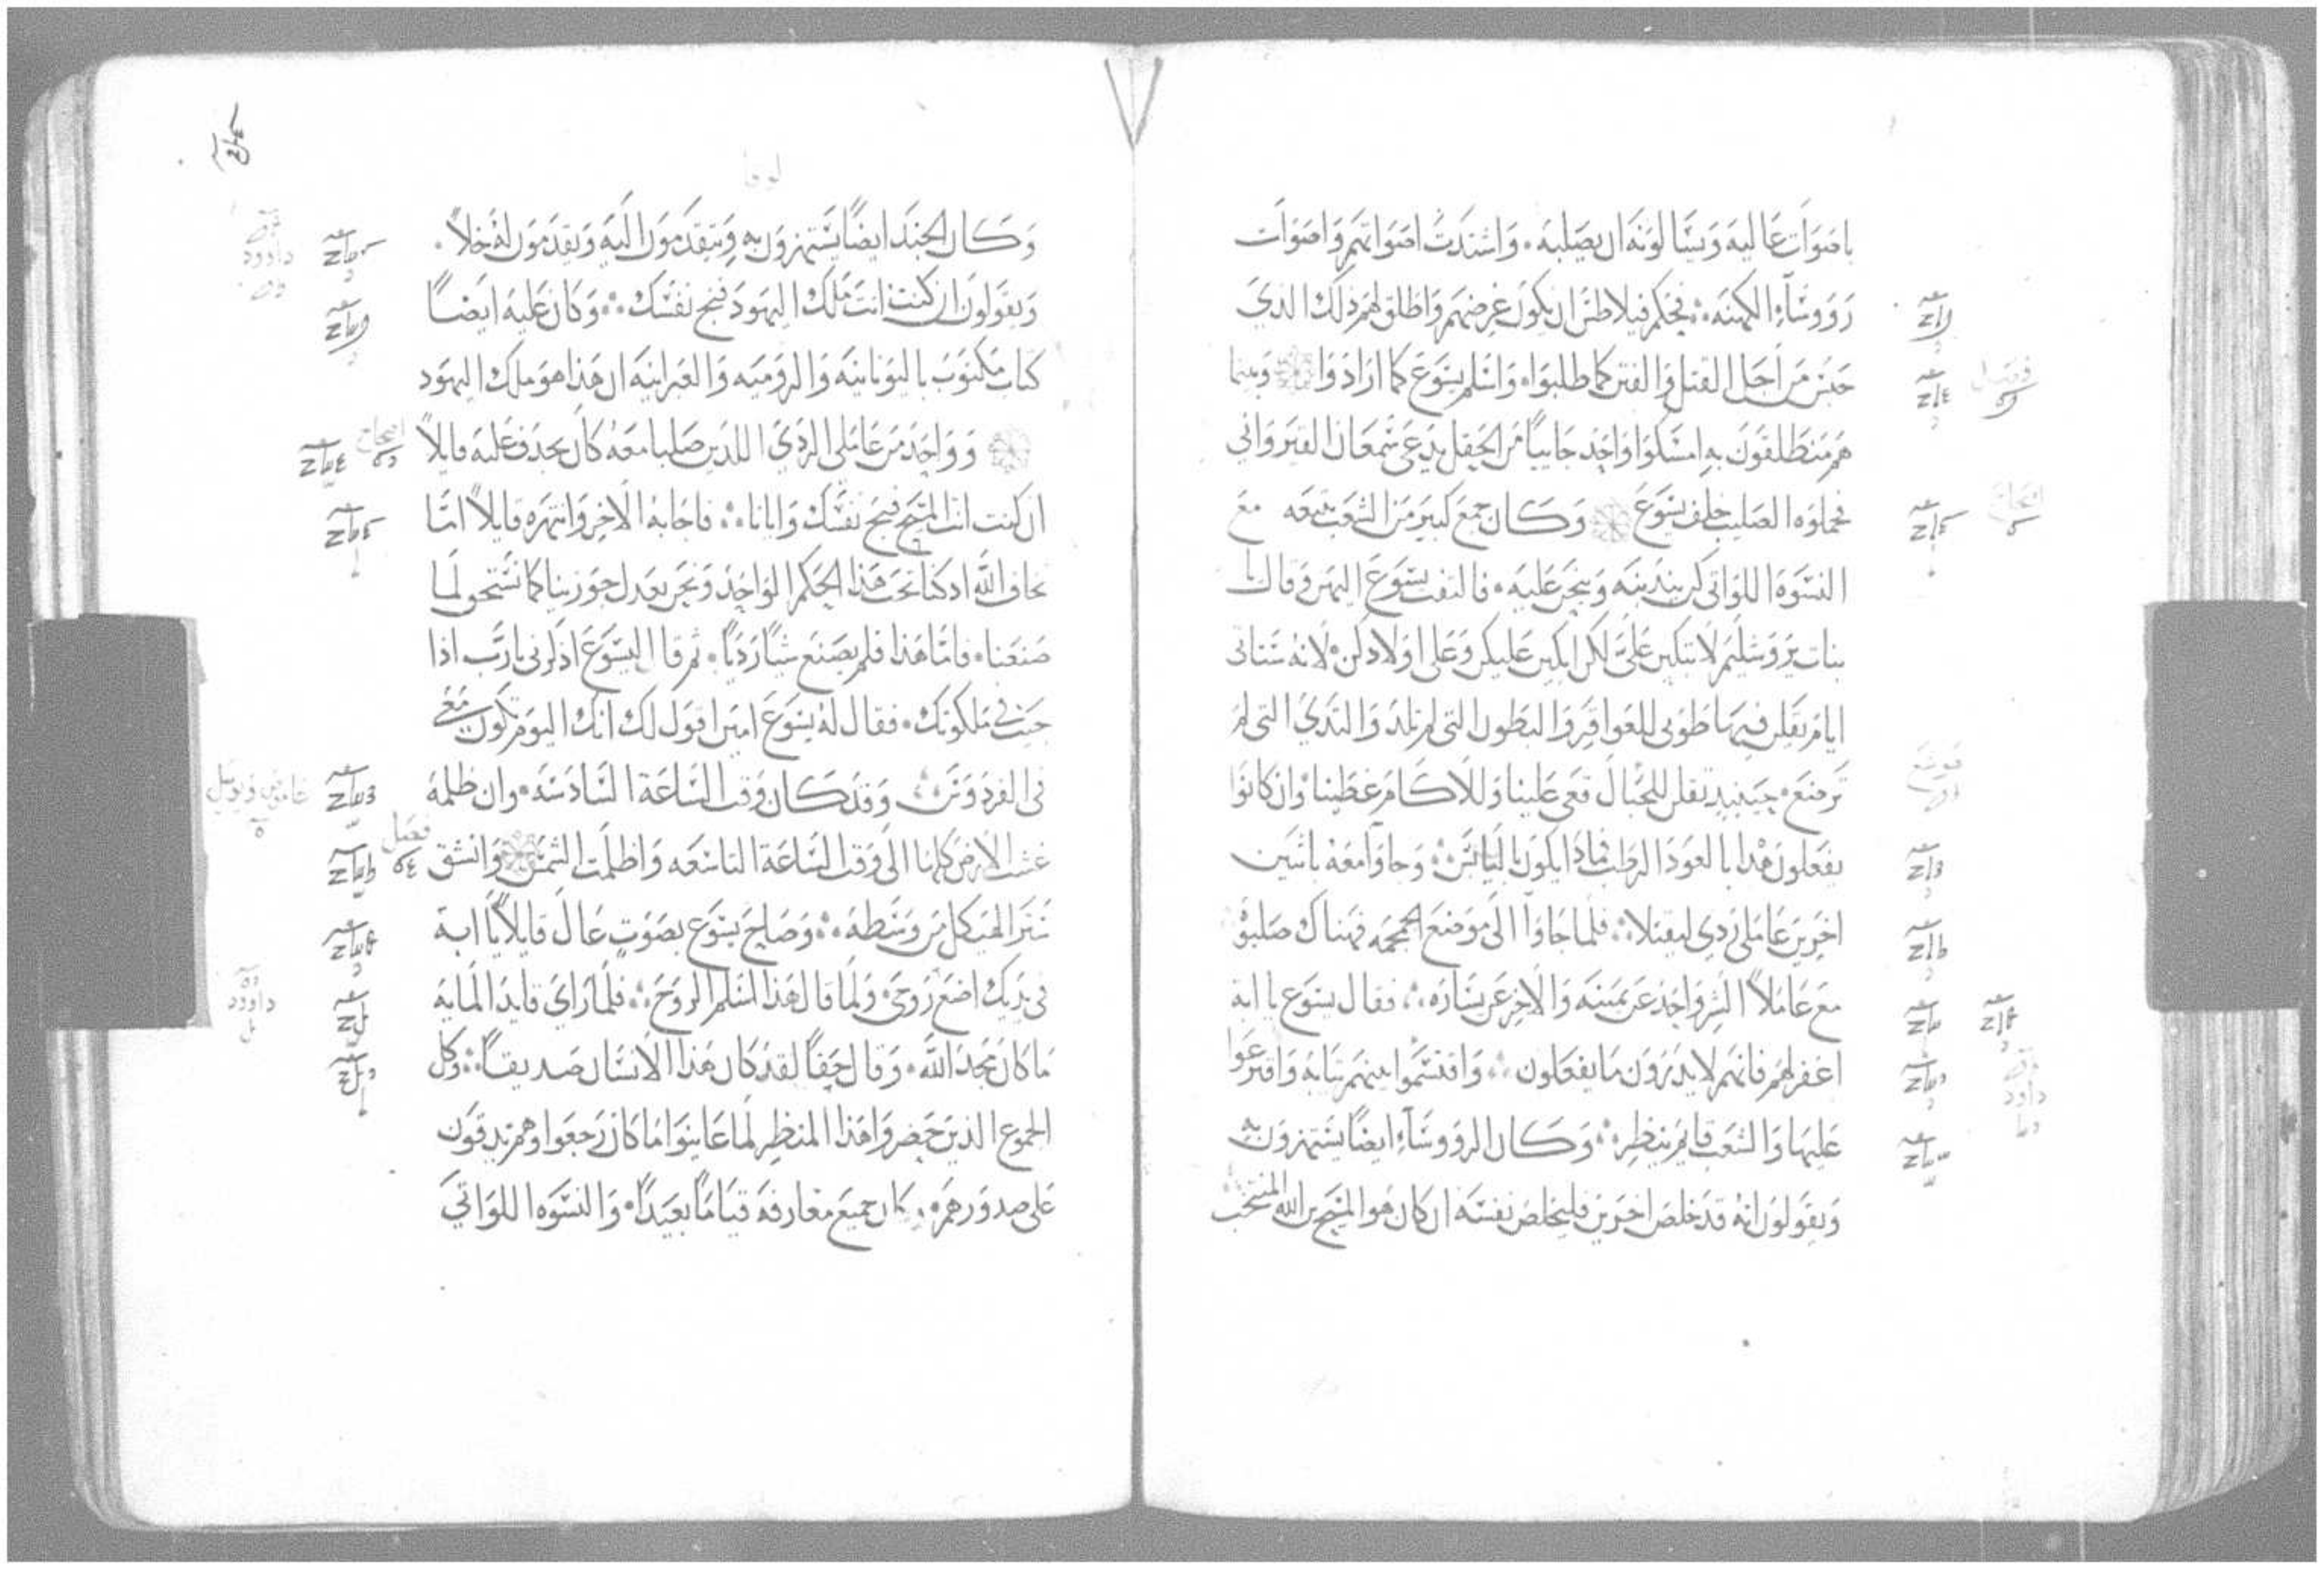 باصوات عاليه ويسالونه ان يصلبه . واشتدت اصواتهم واصوات
رووساء الكهنه ∴ فحكم فيلاطس ان يكون غرضهم واطلق لهم ذلك الذي
حبس من اجل القتل والفتن كما طلبوا ٥ واسلم يسوع كما ارادوا وبينما
هم منطلقون به امسكوا واحد جاييا من الحقل يدعى شمعان القيرواني
فحملوه الصليب خلف يسوع وكان جمع كبير من الشعب يتبعه مع
النسوه اللواتي كن يندبنه وينحن عليه . فالتفت يسوع اليهن وقال يا
بنات يروشليم لا تبكين علي لكن ابكين عليكن وعلى اولادكن . لانه ستاتي
ايام يقلن فيها طوبى للعواقر والبطون التي لم تلد والثدي التي لم
ترضع . حينيذ تقلن للجبال قعى علينا وللاكام غطينا . وان كانوا
يفعلون هذا بالعود الرطب فماذا يكون باليابس ∴ وجاوا معه باثنين
اخرين عاملي ردي ليقتلا ∴ فلما جاوا الى موضع الجمجمه فهناك صلبوه
مع عاملا الشر واحد عن يمينه والاخر عن يساره ∴ فقال يسوع يا ابة
اغفر لهم فانهم لا يدرون ما يفعلون ∴ واقتسموا بينهم ثيابه واقترعوا
عليها والشعب قايم ينظر ∴ وكان الرووساء ايضا يستهزون به
ويقولون انه قد خلص اخرين فليخلص نفسه ان كان هو المسيح بن الله المنتخب
فصل
اصحاح
داود
لوقا
وكان الجند ايضا يستهزون به ويتقدمون اليه ويقدمون له خلا .
ويقولون ان كنت انت ملك اليهود فنج نفسك ∴ وكان عليه ايضا
كتاب مكتوب باليونانيه والروميه والعبرانيه ان هذا هو ملك اليهود
وواحد من عاملي الردي اللذين صلبا معه كان يجدف عليه قايلا
ان كنت انت المسيح فنج نفسك وايانا ∴ فاجابه الاخر وانتهره قايلا اما
تخاف الله اذ كنا تحت هذا الحكم الواحد ونحن بعدل جوزينا كما نستحق لما
صنعنا . فاما هذا فلم يصنع شيا رديا . ثم قال ليسوع اذكرني يا رب اذا
جيت في ملكوتك . فقال له يسوع امين اقول لك انك اليوم تكون معي
في الفردوس وقد كان وقت الساعة السادسه . وان ظلمة
غشت الارض كلها الى وقت الساعة التاسعه واظلمت الشمس وانشق
ستر الهيكل من وسطه ∴ وصاح يسوع بصوت عال قايلا يا ابة
في يديك اضع روحي . ولما قال هذا اسلم الروح ∴ فلما راى قايد المايه
ما كان مجد الله . وقال حقا لقد كان هذا الانسان صديقا ∴ وكل
الجموع الذين حضروا هذا المنظر لما عاينوا ما كان رجعوا وهم يدقون
على صدورهم . وكان جميع معارفه قياما بعيدا . والنسوه اللواتي
داوود
اصحاح
فصل
داوود